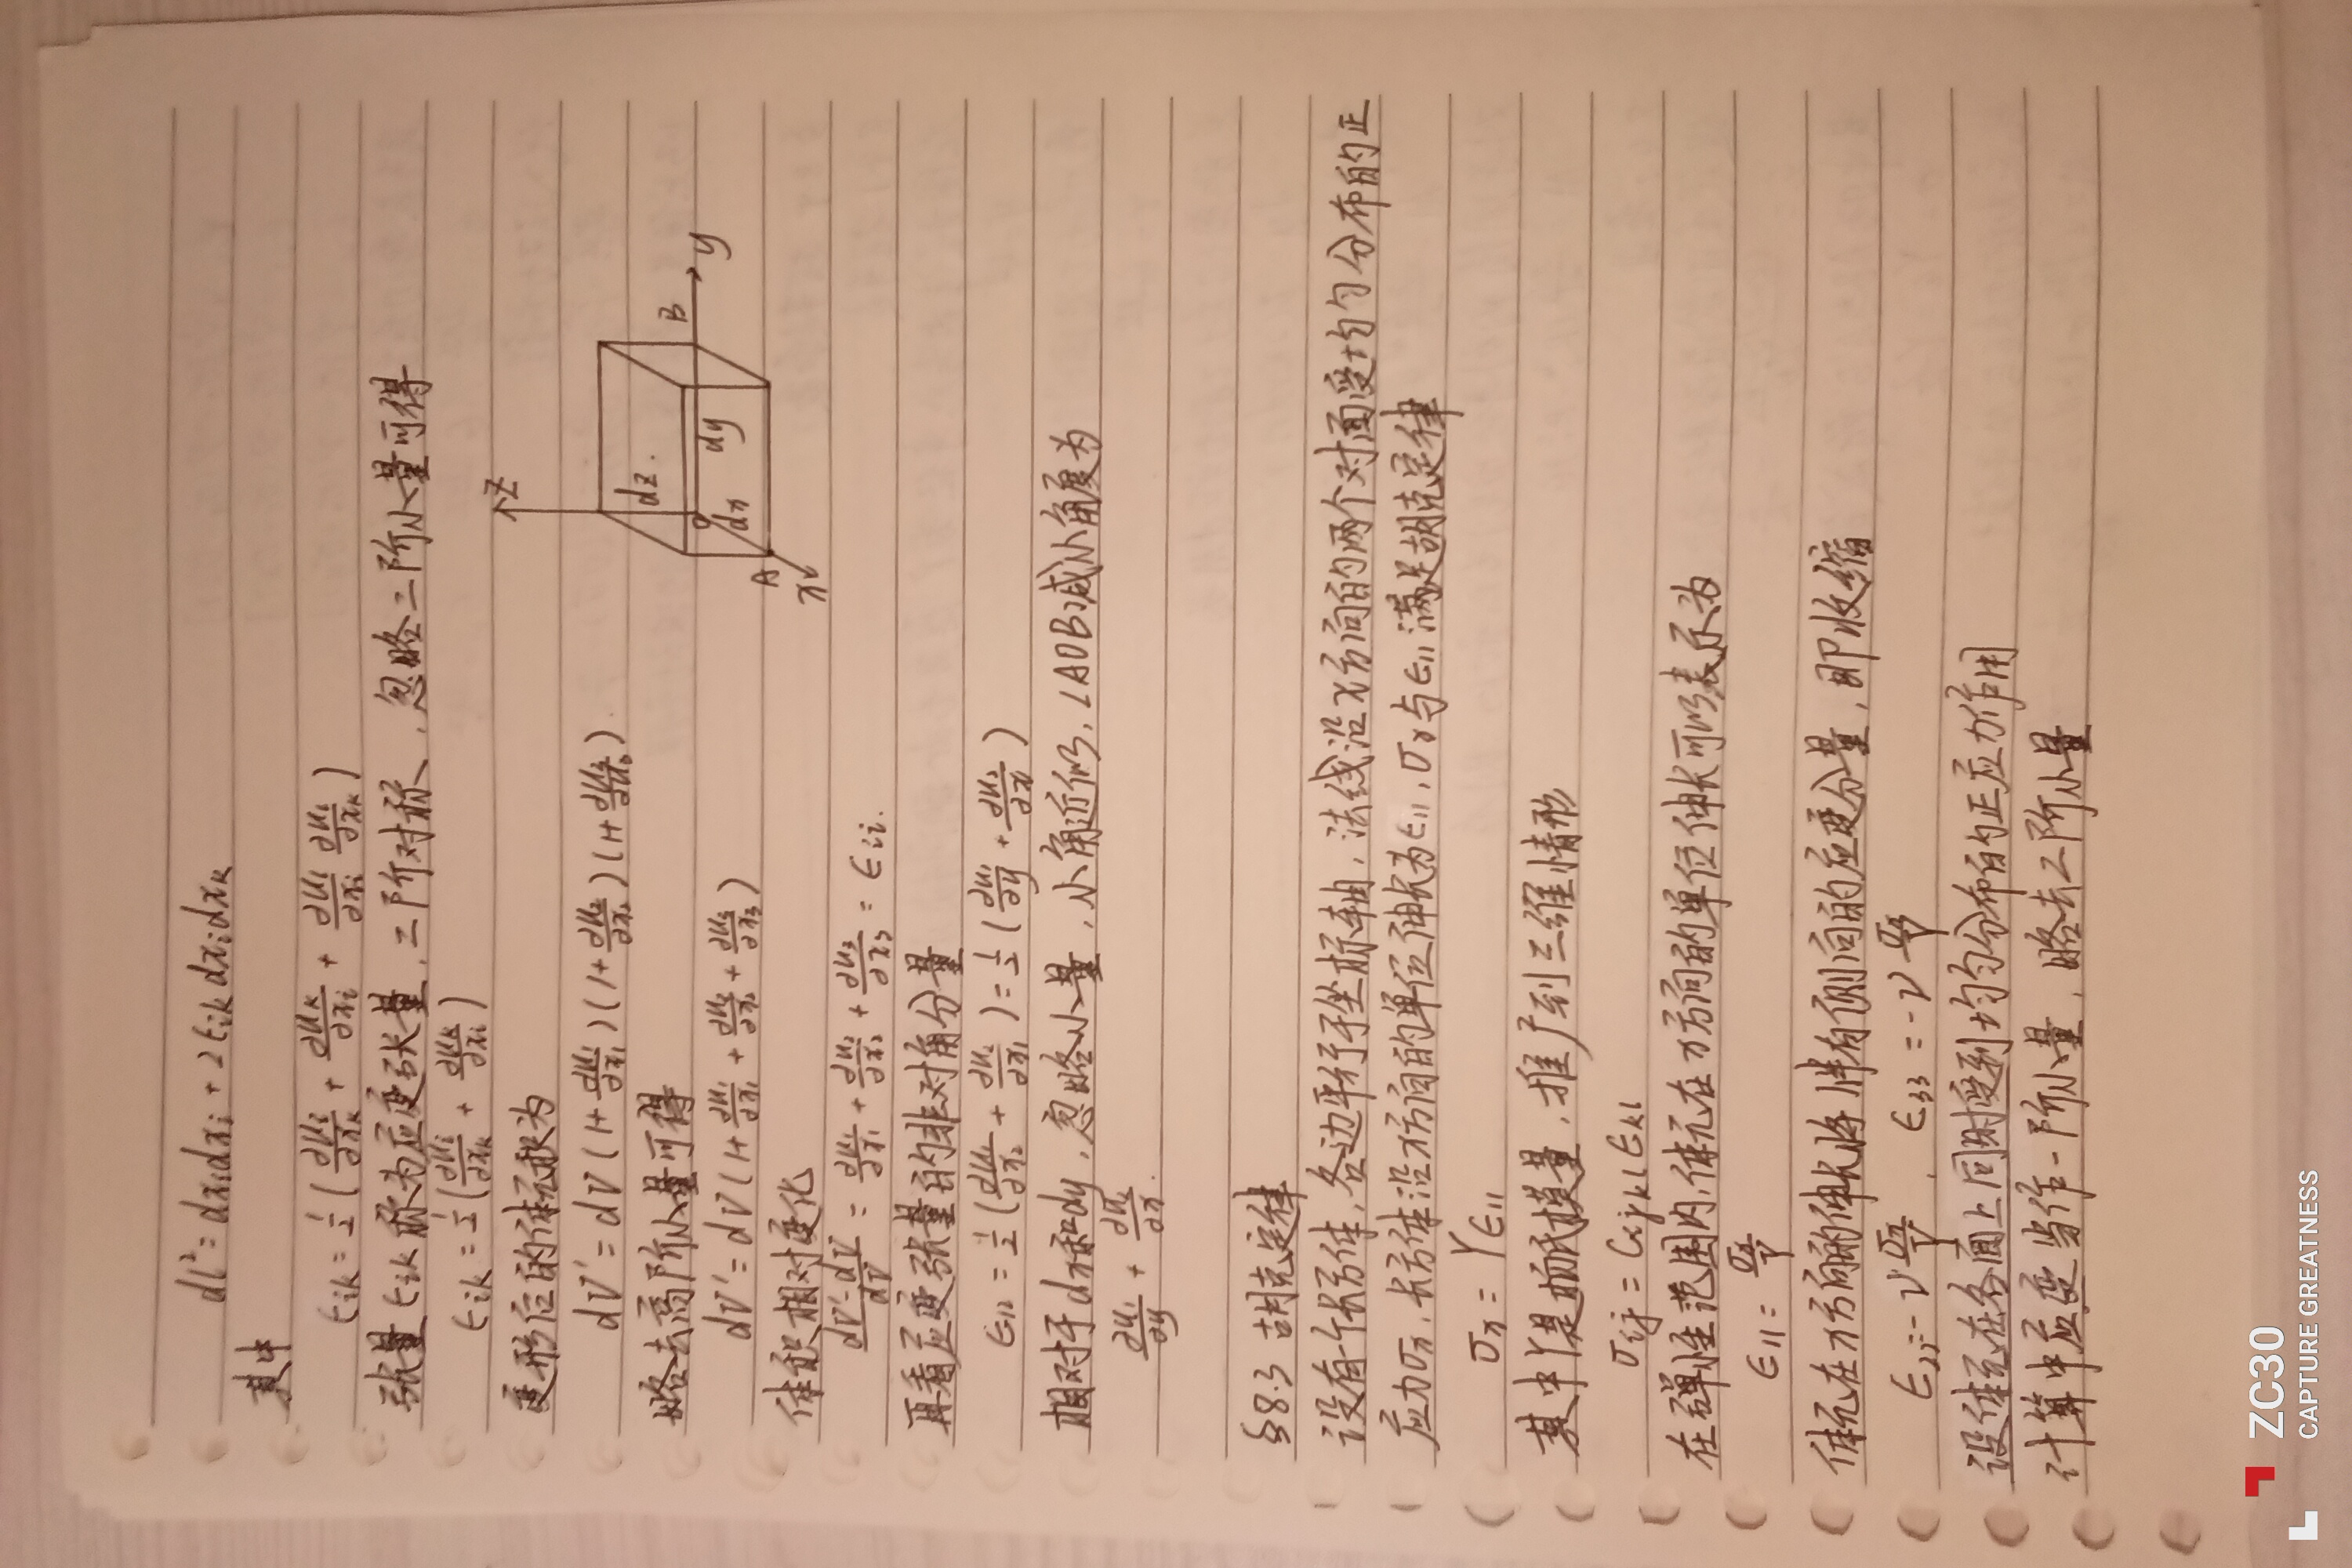 dl'² = dxᵢdxᵢ + 2εᵢₖdxᵢdxₖ
其中
εᵢₖ = ½(∂uᵢ/∂xₖ + ∂uₖ/∂xᵢ + ∂uₗ/∂xᵢ ∂uₗ/∂xₖ)
张量εᵢₖ称为应变张量,二阶对称,忽略二阶小量可得
εᵢₖ = ½(∂uᵢ/∂xₖ + ∂uₖ/∂xᵢ)
变形后的体元体积为
dV' = dV(1+∂u₁/∂x₁)(1+∂u₂/∂x₂)(1+∂u₃/∂x₃)
略去高阶小量可得
dV' = dV(1+∂u₁/∂x₁ + ∂u₂/∂x₂ + ∂u₃/∂x₃)
体积相对变化
(dV'-dV)/dV = ∂u₁/∂x₁ + ∂u₂/∂x₂ + ∂u₃/∂x₃ = εᵢᵢ.
再看应变张量的非对角分量
ε₁₂ = ½(∂u₁/∂x₂ + ∂u₂/∂x₁) = ½(∂u₁/∂y + ∂u₂/∂x)
相对于dx和dy,忽略小量,小角近似,∠AOB减小角度为
∂u₁/∂y + ∂u₂/∂x.
z
dz.
B
y
O
dx
dy
A
x
§8.3 胡克定律
设有个长方体,各边平行于坐标轴,法线沿x方向的两个对面受均匀分布的正
应力σₓ,长方体沿x方向的单位伸长为ε₁₁,σₓ与ε₁₁满足胡克定律
σₓ = Yε₁₁
其中Y是杨氏模量,推广到三维情形
σᵢⱼ = Cᵢⱼₖₗεₖₗ
在弹性范围内,体元在x方向的单位伸长可以表示为
ε₁₁ = σₓ/Y
体元在x方向的伸长将伴有侧向的应变分量,即收缩
ε₂₂ = -ν σₓ/Y , ε₃₃ = -ν σₓ/Y
设体元在各面上同时受到均匀分布的正应力作用
计算中应变当作一阶小量,略去二阶小量
ZC30
CAPTURE GREATNESS